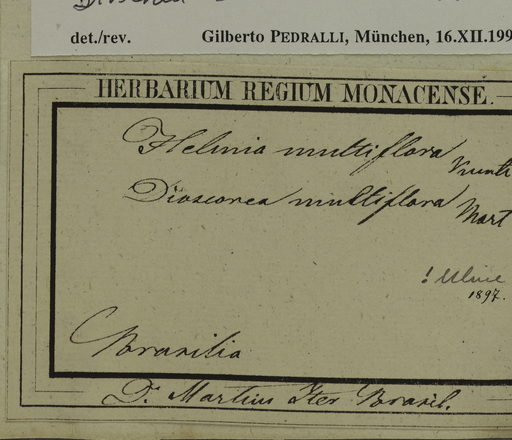 Dioscorea
det./rev. Gilberto PEDRALLI, München, 16.XII.199
HERBARIUM REGIUM MONACENSE.
Helmia multiflora Kunth
Dioscorea multiflora Mart
! Uline
1897.
Brasilia
Dr. Martius Iter Brasil.